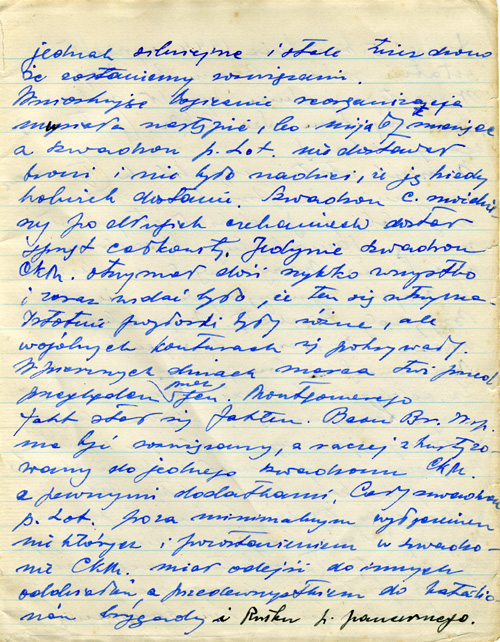 jednak silniejsze i stale twierdzono
że zostaniemy rozwiązani.
Wnioskując logicznie reorganizacja
musiała nastąpić, bo mijały miesiące
a szwadron p. Lot. nie dostawał
broni i nie było nadziei, że ją kiedy
kolwiek dostanie. Szwadron c. moździe
rzy po długich czekaniach dostał
sprzęt całkowity. Jedynie szwadron
CKM. otrzymał dość szybko wszystko
i zaraz widać było, że ten się utrzyma.
Istotnie pogłoski były różne, ale
w ogólnych konturach się pokrywały.
W pierwszych dniach marca tuż przed
przeglądem przez gen. Montgomerego
fakt stał się faktem. Baon Br. Wsp.
ma być rozwiązany, a raczej zkurczo-
wany do jednego szwadronu CKM.
z pewnymi dodatkami. Cały szwadron
p. Lot. poza minimalnym wyjątkiem
niektórych i pozostawieniem w szwadro-
nie CKM. miał odejść do innych
oddziałów a przedewszystkiem do batalio
nów brygady i Pułku p. pancernego.